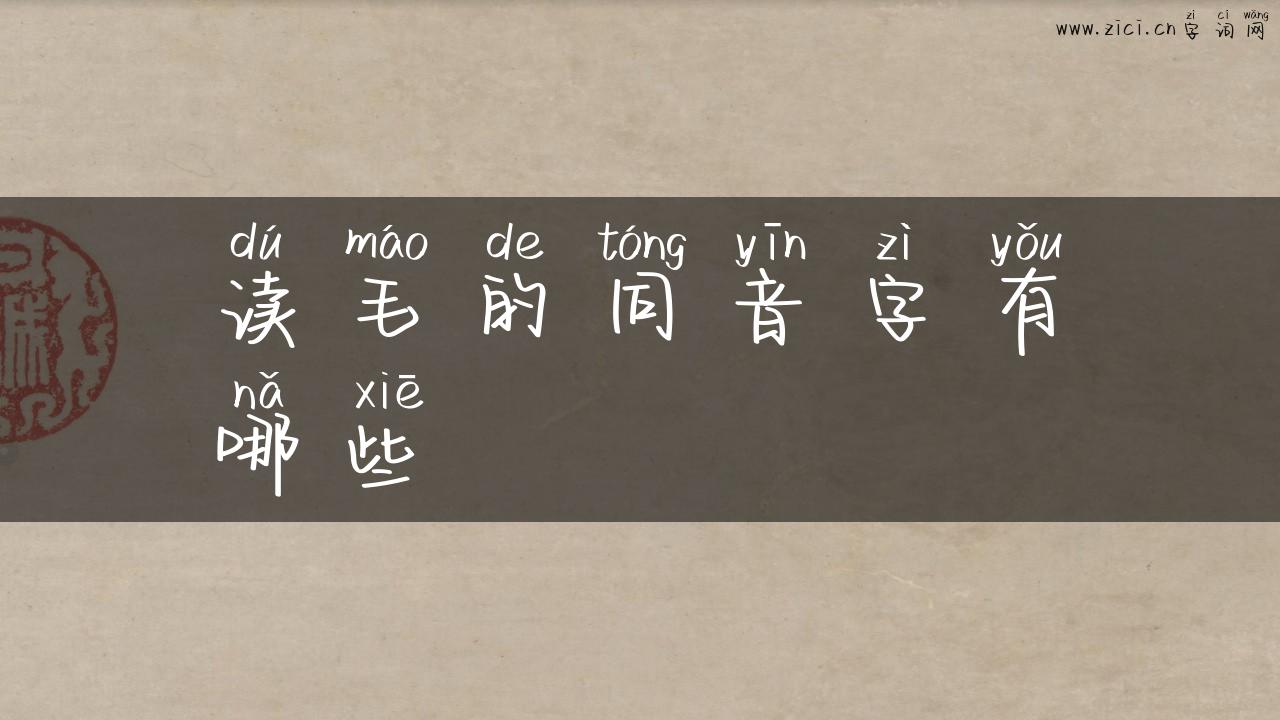 zì cí wǎng
www.zici.cn 字词网
dú máo de tóng yīn zì yǒu
读毛的同音字有
nǎ xiē
哪些